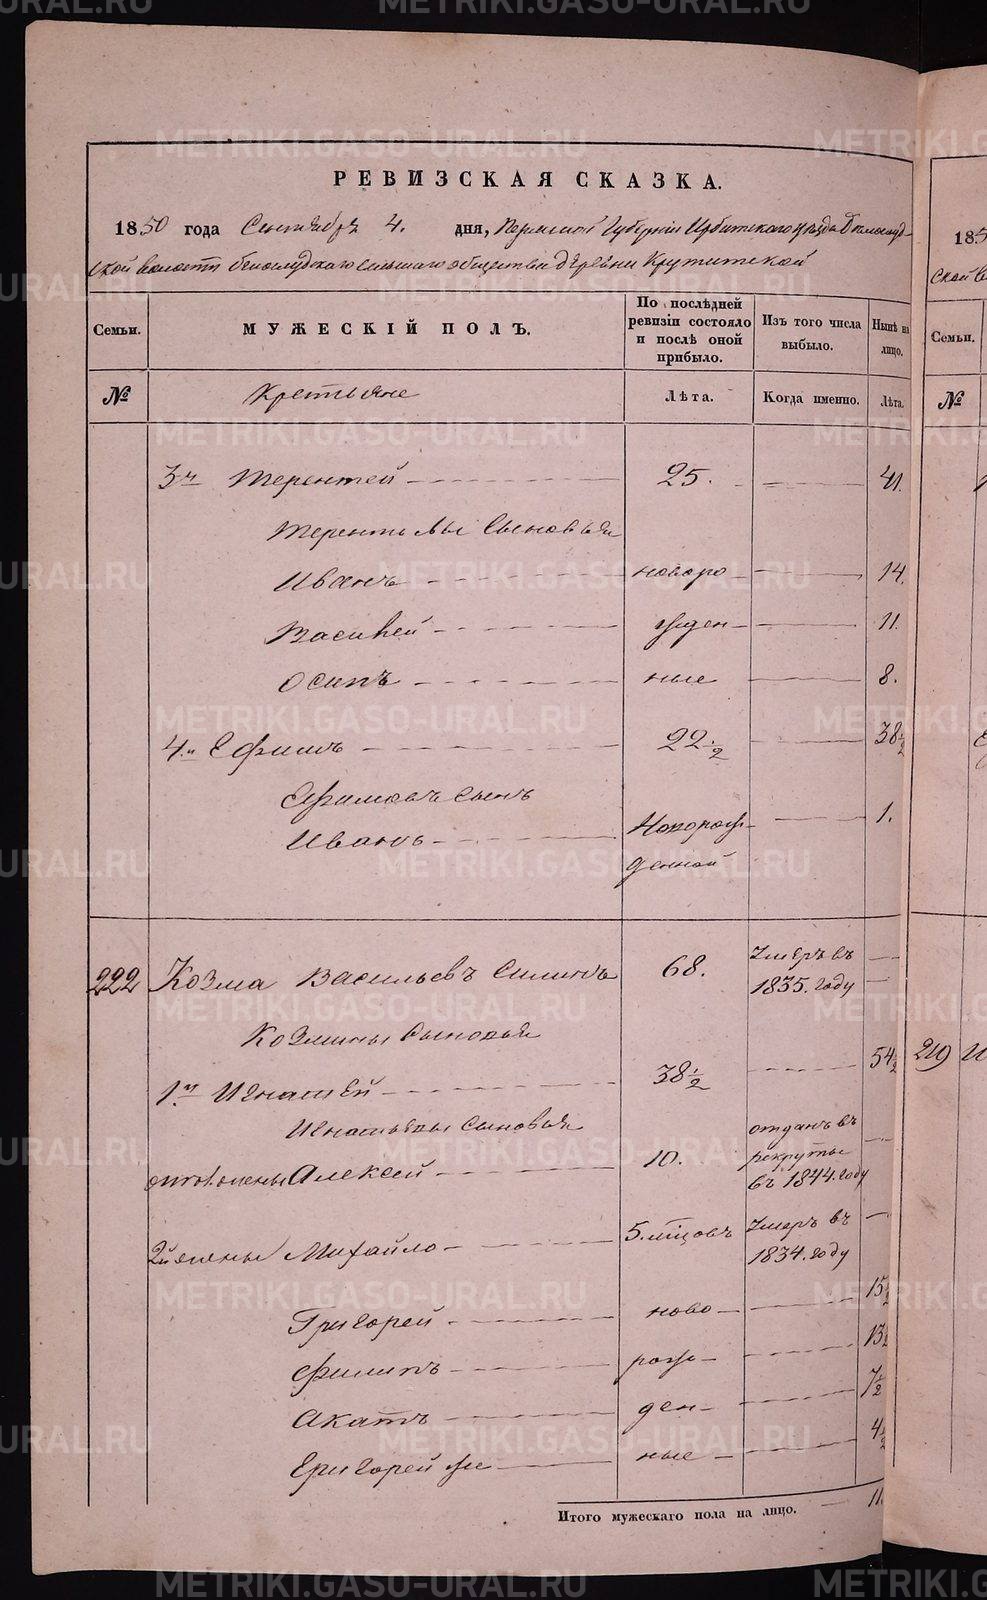 METRIKI.GASO-URAL.RU
РЕВИЗСКАЯ СКАЗКА.
1850 года Сентября 4. дня, Пермской Губернии Ирбитскаго уезда Белослуд-
ской волости белослудскаго сельскаго общества деревни Крутитской
Семьи. МУЖЕСКІЙ ПОЛЪ. По послѣдней ревизіи состояло и послѣ оной прибыло. Изъ того числа выбыло. Нынѣ на лицо.
№ Крестьяне Лѣта. Когда именно. Лѣта.
3й Терентей 25. 41.
Терентьевы сыновья
Иванъ новоро 14.
Василей жден 11.
Осипъ ные 8.
4й Ефимъ 22 1/2 38 1/2
Ефимовъ сынъ
Иванъ Новорож- 1.
денной
222 Козма Васильевъ Силинъ 68. Умеръ въ 1835. году
Козмины сыновья
1й Игнатей 38 1/2 54 1/2
Игнатьевы сыновья
от 1. жены Алексей 10. отданъ въ рекруты въ 1844. году
2й жены Михайло 5. мцовъ Умеръ въ 1834. году
Григорей ново 15 1/2
Филипъ рож 13 1/2
Акатъ ден 7 1/2
Григорей же ные 4 1/2
Итого мужескаго пола на лицо. 11.
185
ской
Семьи.
№
219